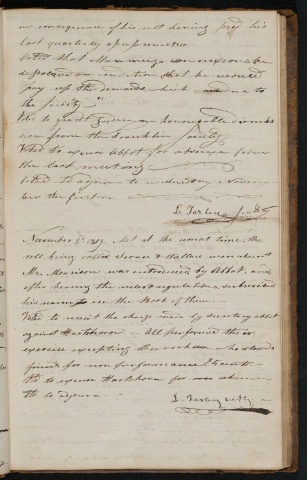 in consequence of his not having paid his
last quarterly assessment
Voted that Manning's connexion be
dissolved on condition that he would
pay up the demands which are due to
the society
Vted to grant an honourable dismis
sion from the Franklin Society
Voted to excuse Abbot for absence from
the last meeting
Voted to adjourn to wednesday Novem
ber the first
L Farley Secty
November 1st Met at the usual time, the
roll being called & Wallace were absent
Mr Morrison was introduced by Abbot, and
after hearing the rules & regulations subscribed
his name in the Book of them
Voted to remit the charge made by Secretary Abbot
against Hartshorn All performed their
exercise excepting who stands
fined for non performance
Vtd to excuse Hartshorn for
Vtd to adjourn
L Farley Secty